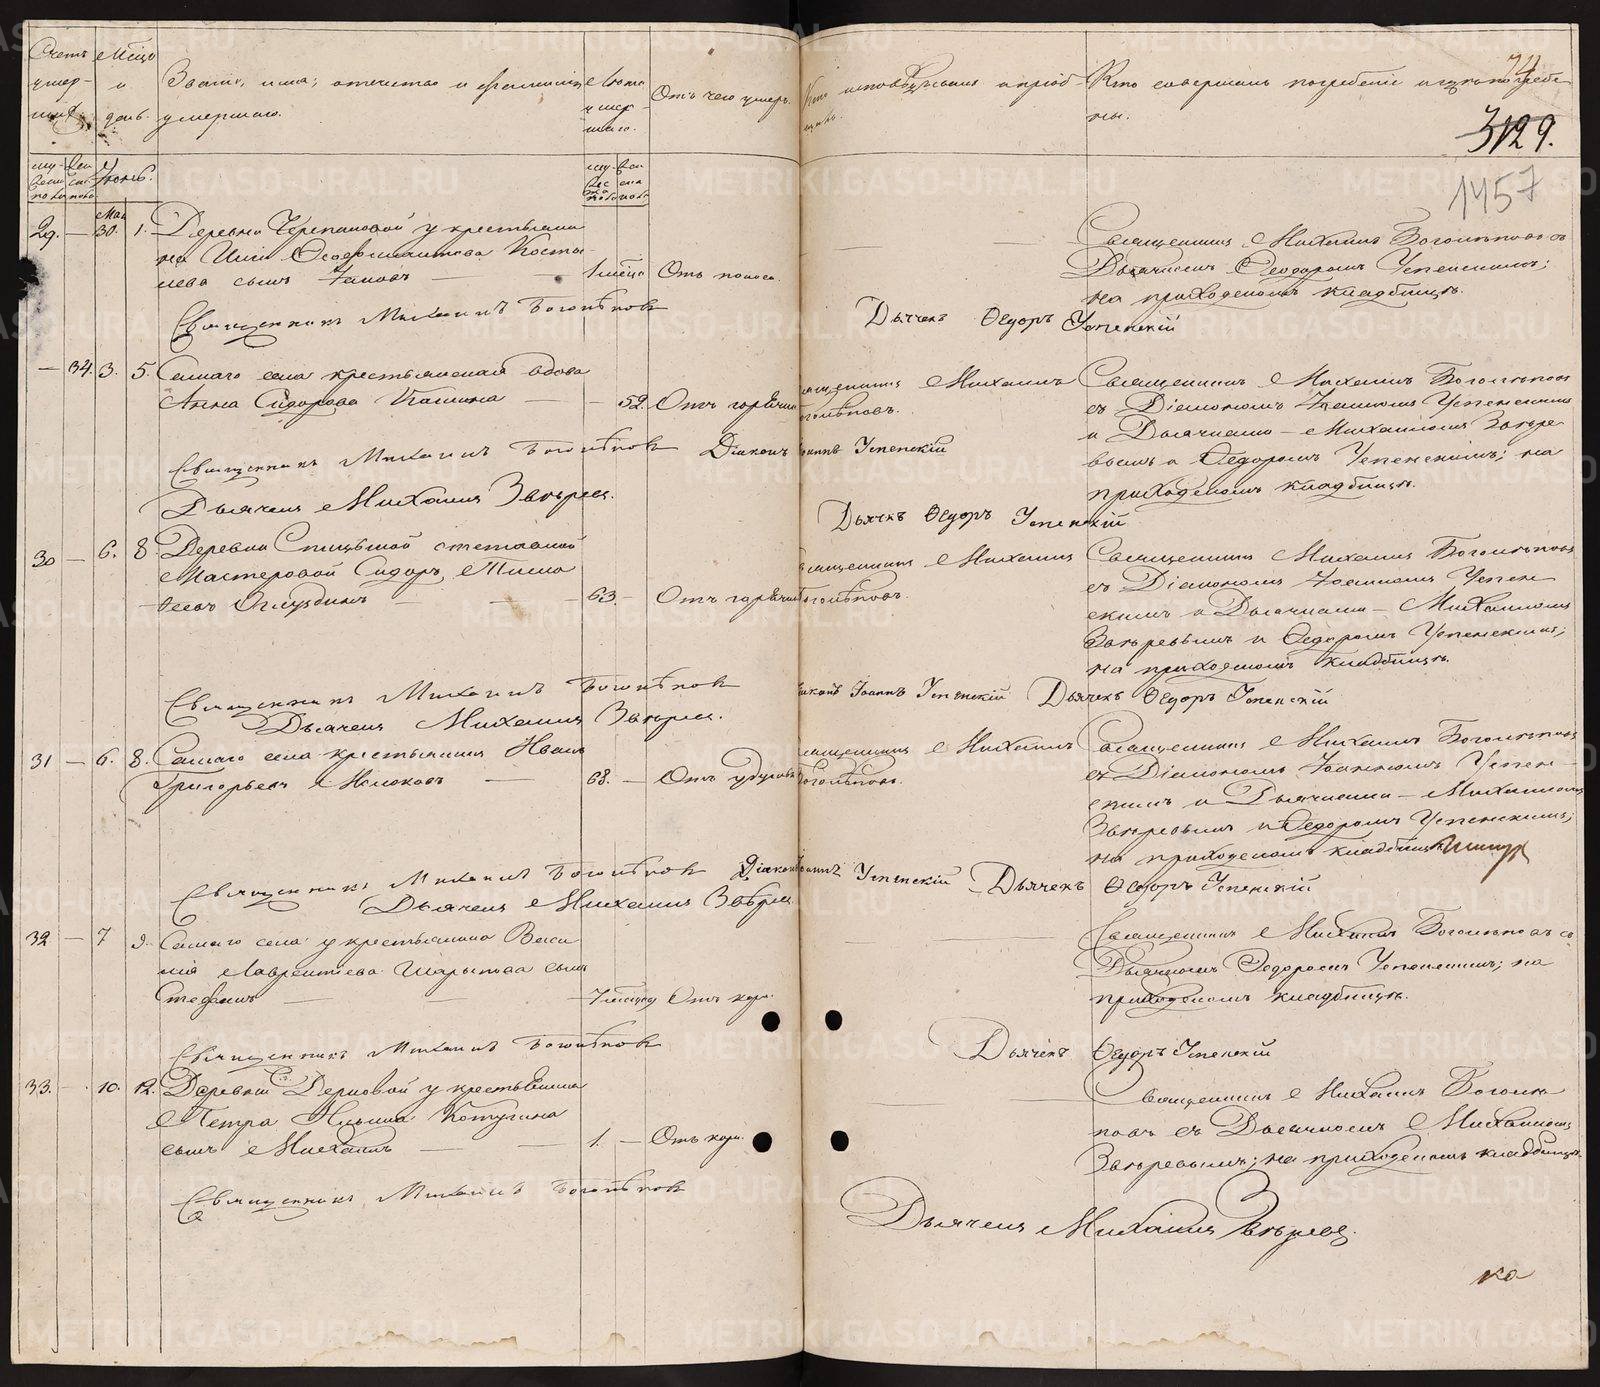 Счетъ умер-
шихъ
Мѣсяцъ и день.
Званіе, имя, отчество и фамилія
умершаго.
Лѣта умер-
шаго.
Отъ чего умеръ.
Кто исповѣдывалъ и пріоб-
щалъ.
Кто совершалъ погребеніе и гдѣ погребе-
ны.
74
3129.
1457
Іюнь.
29. — Мая 30. 1. Деревни Черепановой у крестьяни-
на
сынъ
1 мѣсяца Отъ поноса.
Священникъ Михаилъ Боголѣповъ съ
Дьячкомъ Ѳеодоромъ Успенскимъ;
на приходскомъ кладбищѣ.
Священникъ Михаилъ Боголѣповъ
Дьячекъ Ѳедоръ Успенскій
— 34. 3. 5. Самаго села крестьянская вдова
Анна Сидорова — — 52. Отъ горячки
Священникъ Михаилъ
Боголѣповъ.
Священникъ Михаилъ Боголѣповъ
съ Діакономъ Іоанномъ Успенскимъ
и Дьячками — Михаиломъ Звѣре-
вымъ и Ѳедоромъ Успенскимъ; на
приходскомъ кладбищѣ.
Священникъ Михаилъ Боголѣповъ Діаконъ Іоаннъ Успенскій
Дьячекъ Михаилъ Звѣревъ.
Дьячекъ Ѳедоръ Успенскій
30 — 6. 8. Деревни
Мастеровой Сидоръ
63. — Отъ горячки
Священникъ Михаилъ
Боголѣповъ.
Священникъ Михаилъ Боголѣповъ
съ Діакономъ Іоанномъ Успен-
скимъ и Дьячками — Михаиломъ
Звѣревымъ и Ѳедоромъ Успенскимъ;
на приходскомъ кладбищѣ.
Священникъ Михаилъ Боголѣповъ Діаконъ Іоаннъ Успенскій Дьячекъ Ѳедоръ Успенскій
Дьячекъ Михаилъ Звѣревъ.
31 — 6. 8. Самаго села крестьянинъ Иванъ
Григорьевъ — 68. — Отъ удушья
Священникъ Михаилъ
Боголѣповъ.
Священникъ Михаилъ Боголѣповъ
съ Діакономъ Іоанномъ Успен-
скимъ и Дьячками — Михаиломъ
Звѣревымъ и Ѳедоромъ Успенскимъ;
на приходскомъ кладбищѣ.
Священникъ Михаилъ Боголѣповъ Діаконъ Іоаннъ Успенскій Дьячекъ Ѳедоръ Успенскій
Дьячекъ Михаилъ Звѣревъ
32 — 7 9. Самаго села у крестьянина Васи-
лія Лаврентіева Шарыпова сынъ
Стефанъ — — Отъ кори.
Священникъ Михаилъ Боголѣповъ съ
Дьячкомъ Ѳедоромъ Успенскимъ; на
приходскомъ кладбищѣ.
Священникъ Михаилъ Боголѣповъ
Дьячекъ Ѳедоръ Успенскій
33. — 10. 12. Деревни у крестьянина
Петра Ильина Котугина
сынъ Михаилъ — — 1. — Отъ кори.
Священникъ Михаилъ Боголѣ-
повъ съ Дьячкомъ Михаиломъ
Звѣревымъ; на приходскомъ кладбищѣ.
Священникъ Михаилъ Боголѣповъ
Дьячекъ Михаилъ Звѣревъ.
ка
METRIKI.GASO-URAL.RU